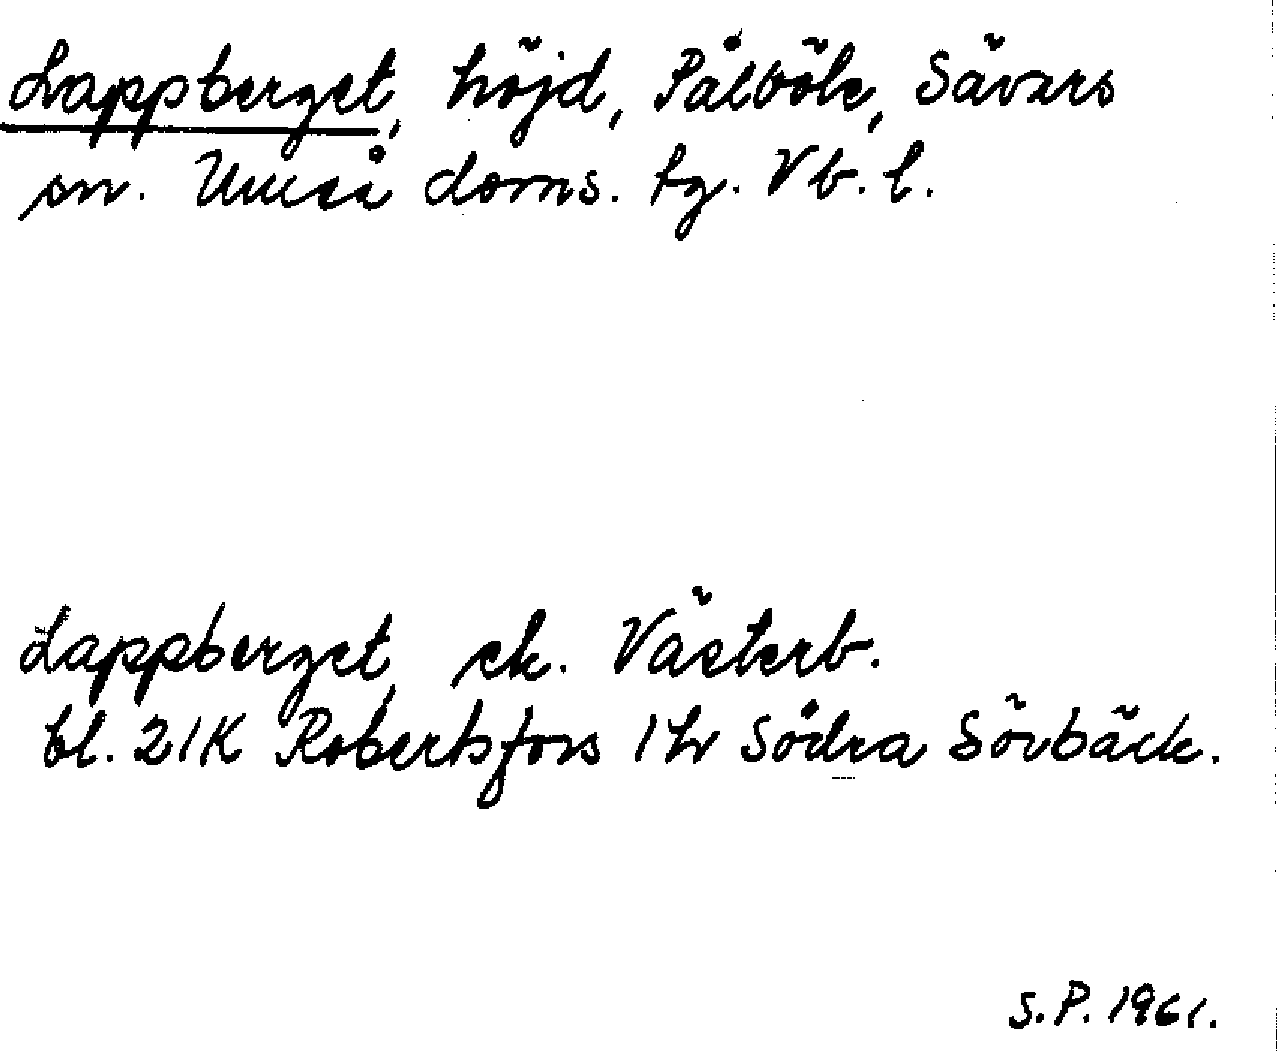 Lappberget, höjd, Pålböle, Sävars
sn. Umeå doms. tg. Vb. l.
Lappberget, ek. Västerb.
bl. 21K Robertsfors 1 hr Södra Sörbäck.
S.P. 1961.